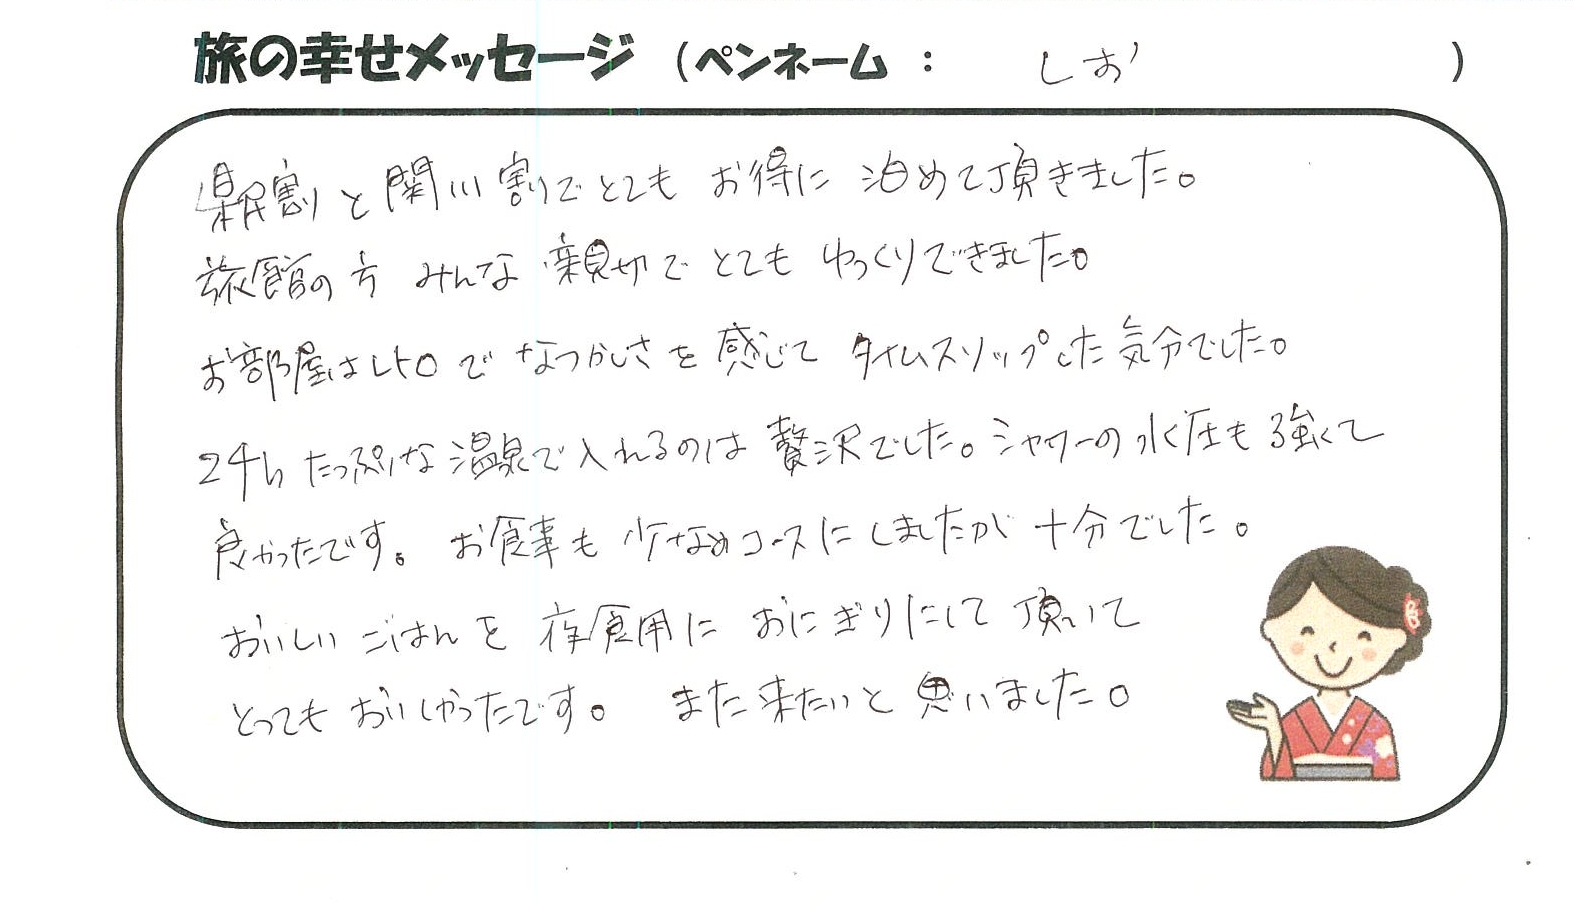 旅の幸せメッセージ (ペンネーム : しお)
県民割と関川割でとてもお得に泊めて頂きました。
旅館の方みんな親切でとてもゆっくりできました。
お部屋はレトロでなつかしさを感じてタイムスリップした気分でした。
24hたっぷりな温泉で入れるのは贅沢でした。シャワーの水圧も強くて
良かったです。お食事も少なめコースにしましたが十分でした。
おいしいごはんを夜食用におにぎりにして頂いて
とってもおいしかったです。また来たいと思いました。